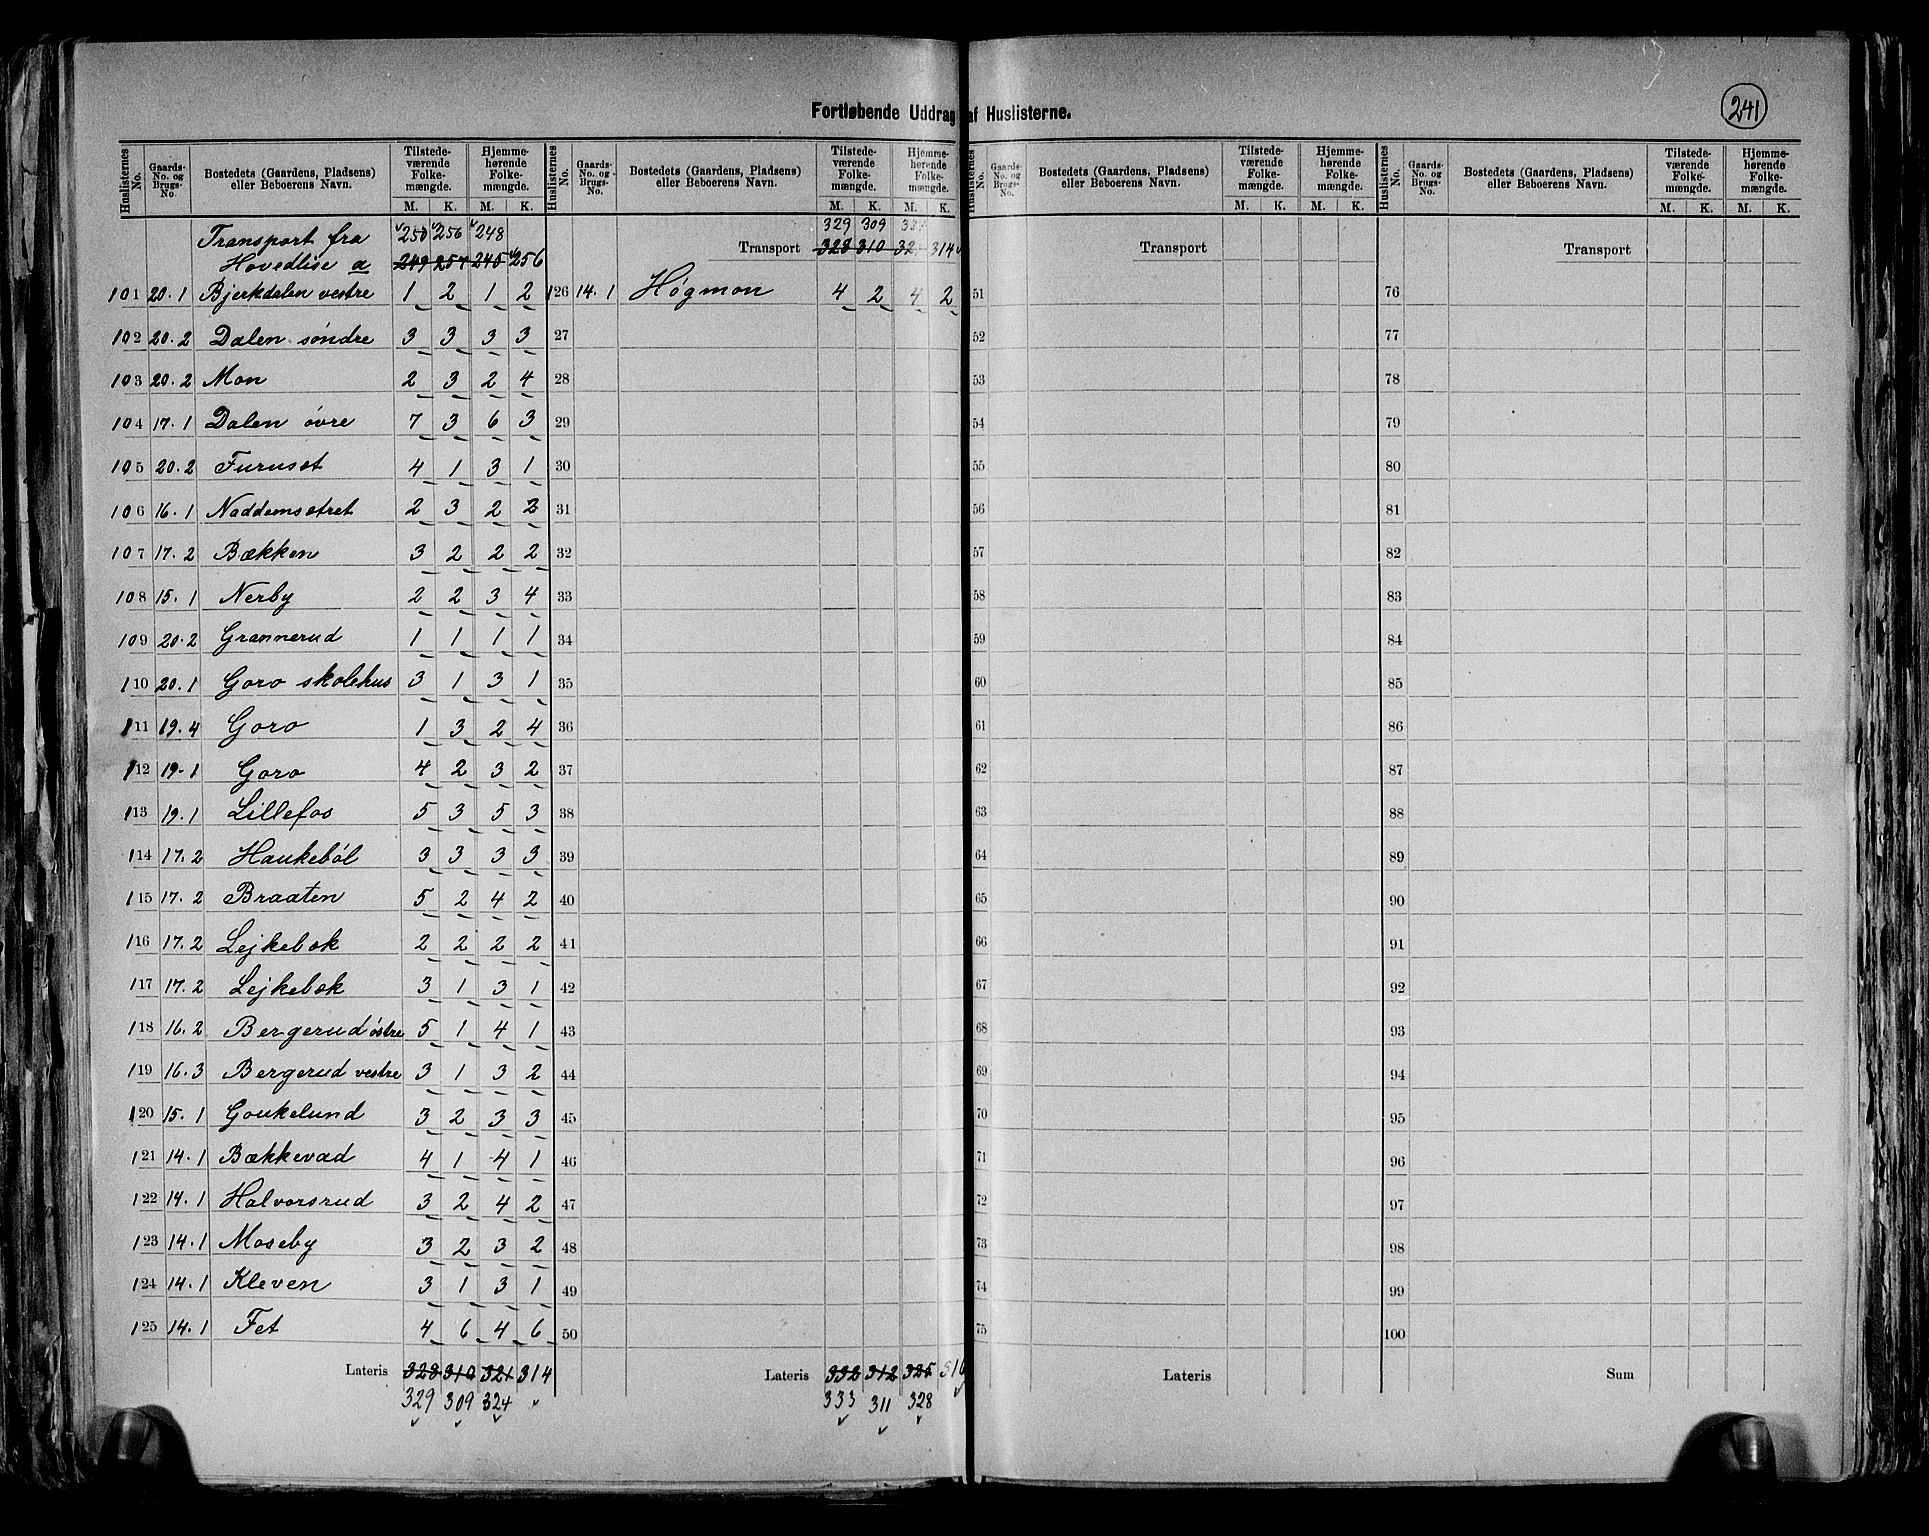 241
Fortløbende Uddrag af Huslisterne.
Huslisternes No. Gaards-No. og Brugs-No. Bostedets (Gaardens, Pladsens) eller Beboerens Navn. Tilstedeværende Folkemængde. M. K. Hjemmehørende Folkemængde. M. K.
Huslisternes No. Gaards-No. og Brugs-No. Bostedets (Gaardens, Pladsens) eller Beboerens Navn. Tilstedeværende Folkemængde. M. K. Hjemmehørende Folkemængde. M. K.
Huslisternes No. Gaards-No. og Brugs-No. Bostedets (Gaardens, Pladsens) eller Beboerens Navn. Tilstedeværende Folkemængde. M. K. Hjemmehørende Folkemængde. M. K.
Huslisternes No. Gaards-No. og Brugs-No. Bostedets (Gaardens, Pladsens) eller Beboerens Navn. Tilstedeværende Folkemængde. M. K. Hjemmehørende Folkemængde. M. K.
Transport fra 250 256 248
Hovedlise a 249 257 245 256
101 20.1 Bjerkdalen vestre 1 2 1 2
102 20.2 Dalen søndre 3 3 3 3
103 20.2 Mon 2 3 2 4
104 17.1 Dalen øvre 7 3 6 3
105 20.2 Furuset 4 1 3 1
106 16.1 Naddemsætret 2 3 2 2
107 17.2 Bækken 3 2 2 2
108 15.1 Nerby 2 2 3 4
109 20.2 Grannerud 1 1 1 1
110 20.1 Goro skolehus 3 1 3 1
111 19.4 Goro 1 3 2 4
112 19.1 Goro 4 2 3 2
113 19.1 Lillefos 5 3 5 3
114 17.2 Haukebøl 3 3 3 3
115 17.2 Braaten 5 2 4 2
116 17.2 Lejkebæk 2 2 2 2
117 17.2 Lejkebæk 3 1 3 1
118 16.2 Bergerud østre 5 1 4 1
119 16.3 Bergerud vestre 3 1 3 2
120 15.1 Goukelund 3 2 3 3
121 14.1 Bækkevad 4 1 4 1
122 14.1 Halvorsrud 3 2 4 2
123 14.1 Moseby 3 2 3 2
124 14.1 Kleven 3 1 3 1
125 14.1 Fet 4 6 4 6
Lateris 328 310 321 314
329 309 324
329 309
Transport 328 310 314
126 14.1 Høgmon 4 2 4 2
27
28
29
30
31
32
33
34
35
36
37
38
39
40
41
42
43
44
45
46
47
48
49
50
Lateris 332 312 325
333 311 328
Transport
51
52
53
54
55
56
57
58
59
60
61
62
63
64
65
66
67
68
69
70
71
72
73
74
75
Lateris
Transport
76
77
78
79
80
81
82
83
84
85
86
87
88
89
90
91
92
93
94
95
96
97
98
99
100
Sum